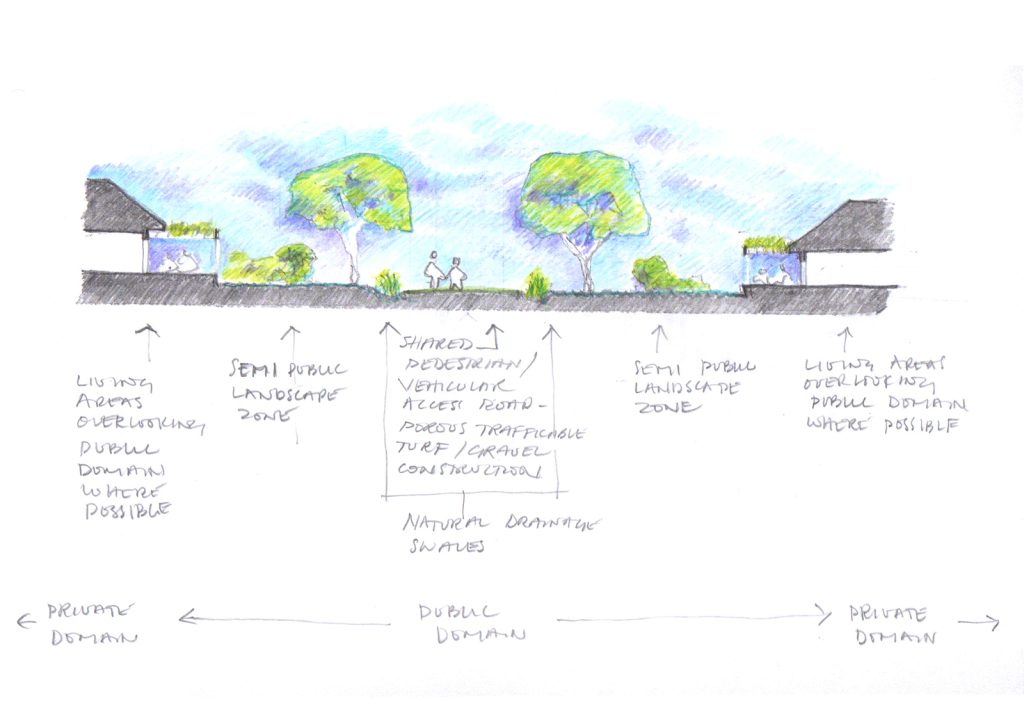 LIVING
AREAS
OVERLOOKING
PUBLIC
DOMAIN
WHERE
POSSIBLE
SEMI PUBLIC
LANDSCAPE
ZONE
SHARED
PEDESTRIAN/
VEHICULAR
ACCESS ROAD-
POROUS TRAFFICABLE
TURF/GRAVEL
CONSTRUCTION
NATURAL DRAINAGE
SWALES
SEMI PUBLIC
LANDSCAPE
ZONE
LIVING AREAS
OVERLOOKING
PUBLIC DOMAIN
WHERE POSSIBLE
PRIVATE
DOMAIN
PUBLIC
DOMAIN
PRIVATE
DOMAIN